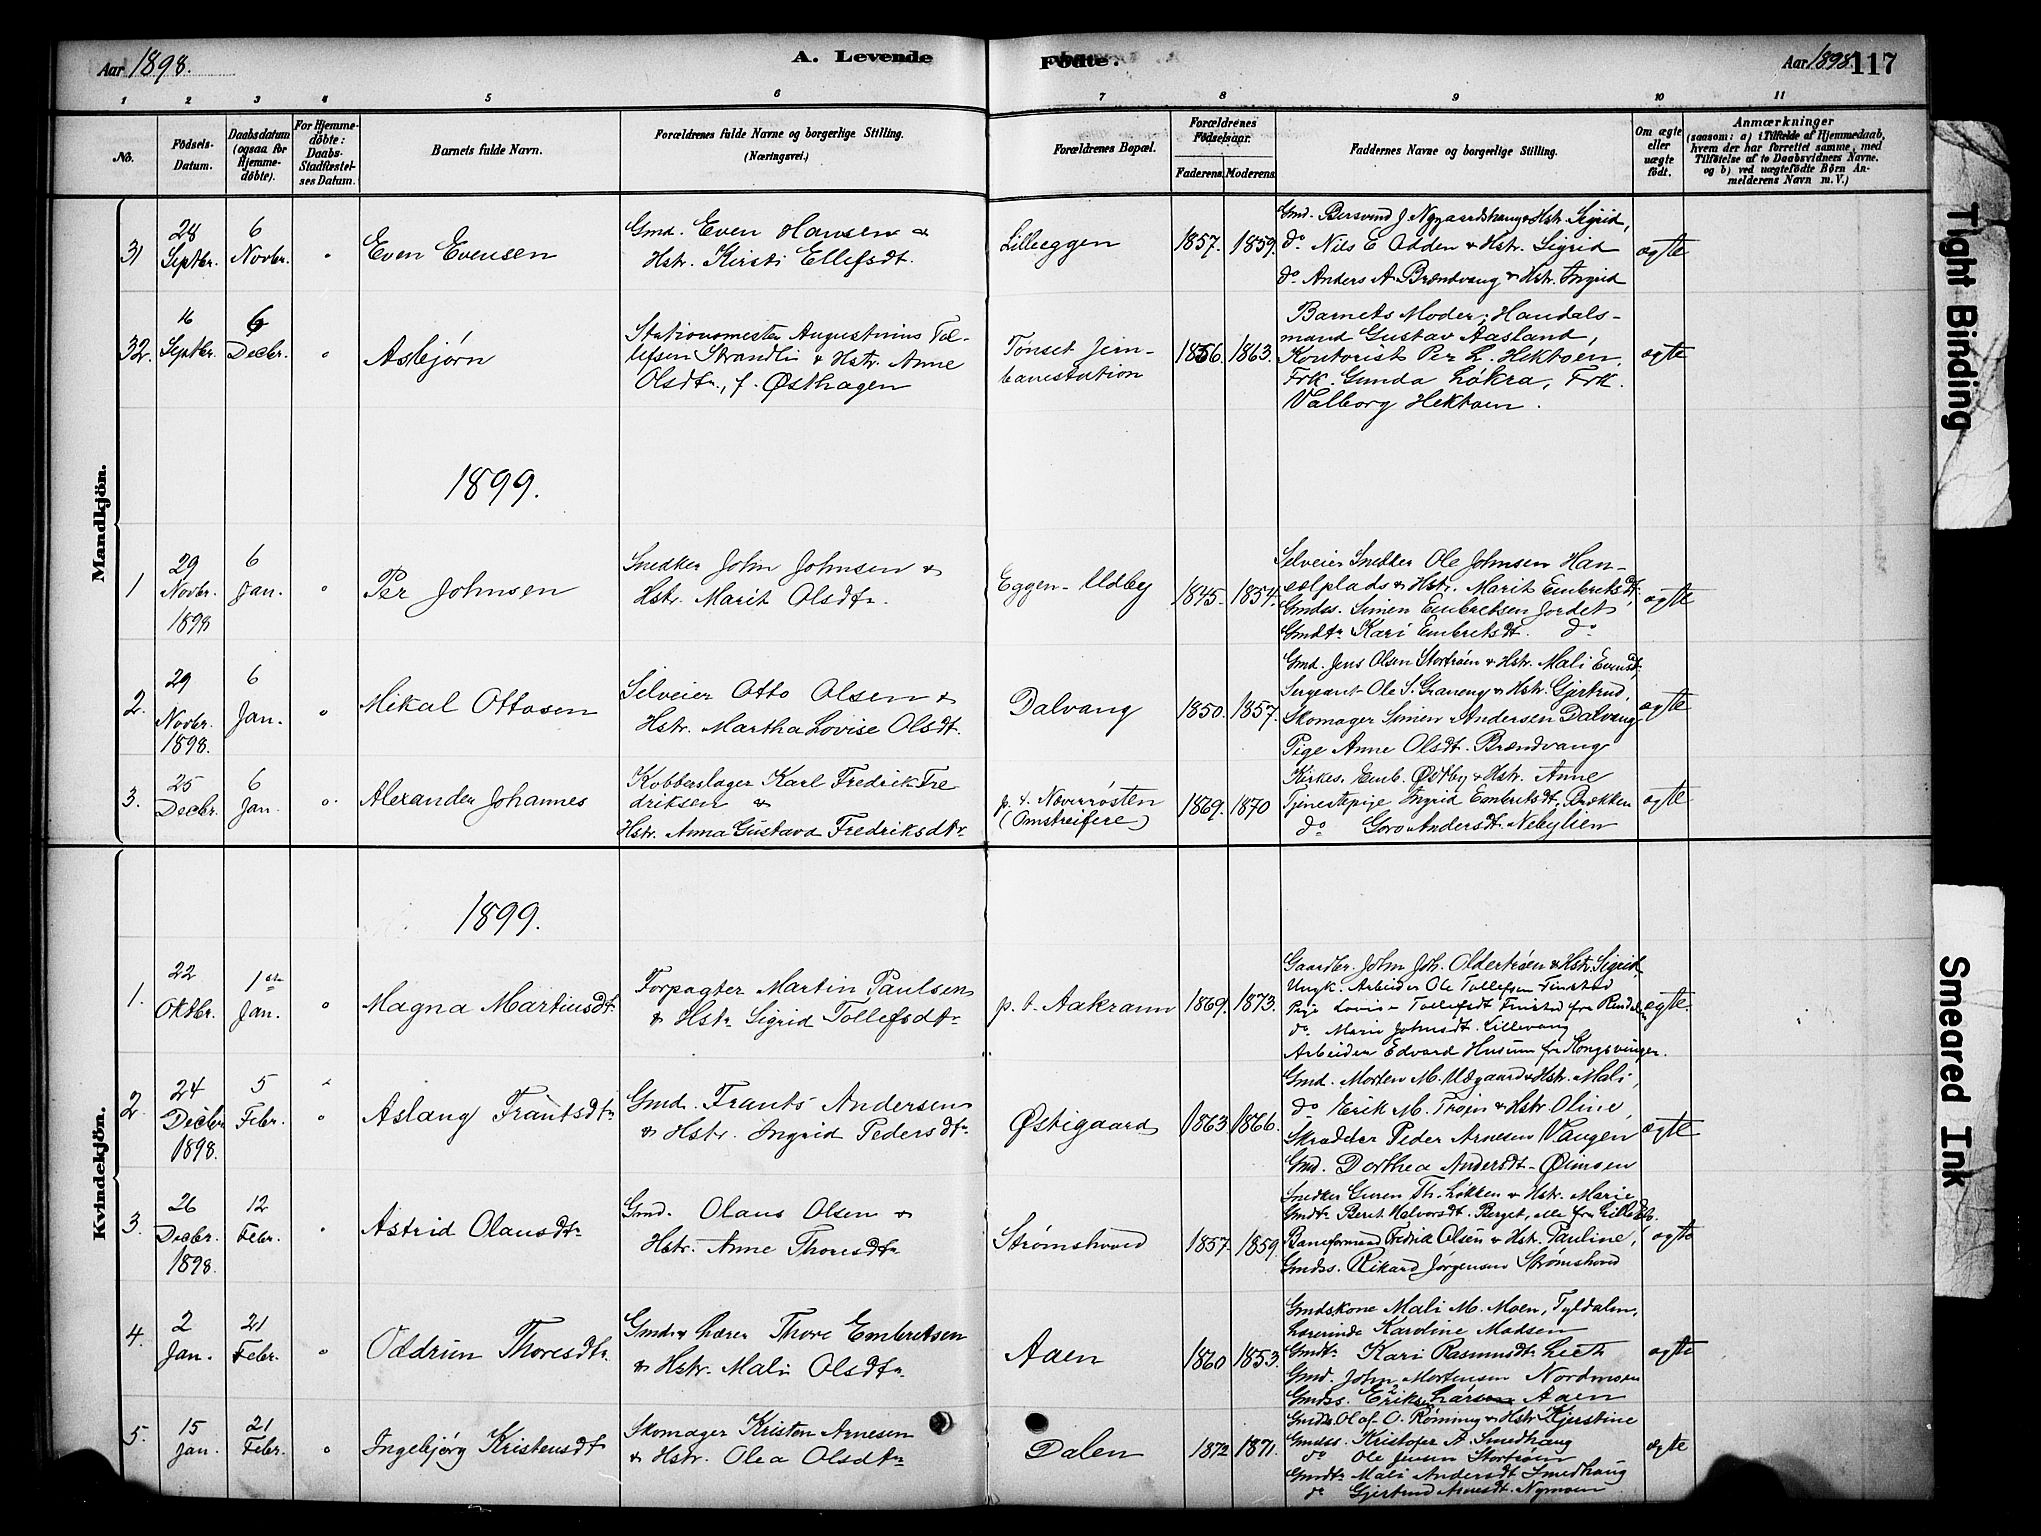 Aar 1898. A. Levende Födte. Aar 1898. 117
1 2 3 4 5 6 7 8 9 10 11
No. Födsels-Datum. Daabsdatum (ogsaa for Hjemme-döbte). For Hjemme-döbte: Daabs-Stadfæstel-ses Datum. Barnets fulde Navn. Forældrenes fulde Navne og borgerlige Stilling. (Næringsvei.) Forældrenes Bopæl. Forældrenes Födselsaar. Faderens. Moderens. Faddernes Navne og borgerlige Stilling. Om ægte eller uægte födt. Anmærkninger
(saasom: a) i Tilfælde af Hjemmedaab,
hvem der har forrettet samme, med
Tilföielse af to Daabsvidners Navne.
og b) ved uægtefödte Börn An-
melderens Navn m. V.)
Mandkjön.
31 28 Septbr. 6 Novbr. " Even Evensen
Gmd. Even Hansen &
Hstr. Kirsti Ellefsdt.
Lilleeggen 1857. 1859.
Gmd. Bersvend J. Nygaardshaug & Hstr. Sigrid,
do Nils E Odden & Hstr. Sigrid
do Anders A Brændvang & Hstr. Ingrid
ægte
32. 16 Septbr. 6 Decbr. " Asbjørn
Stationsmester Augustinius Tol-
lefsen Strandli & Hstr. Anne
Olsdtr., f. Østhagen
Tønset Jern-
banestation
1856. 1863.
Barnets Moder; Handels-
mand Gustav Aasland,
Kontorist Per L. Hektoen,
Frk. Gunda Løkra, Frk.
Valborg Hektoen.
ægte
1899.
1 29 Novbr. 1898 6 Jan. " Per Johnsen
Snedker John Johnsen &
Hstr. Marit Olsdtr.
Eggen-Udby 1845. 1854.
Selveier Snedker Ole Johnsen Han-
eølplads & Hstr. Marit Embretsdt.,
Gmdss. Simen Embretsen Jordet
Gmdtr Kari Embretsdt. do
ægte
2. 29 Novbr. 1898. 6 Jan. " Mikal Ottosen
Selveier Otto Olsen &
Hstr. Martha Lovise Olsdt.
Dalvang 1850. 1857.
Gmd. Jens Olsen Stortrøen & Hstr. Mali Evensdt.,
Sergeant Ole S. Graneng & Hstr. Gjertrud,
Skomager Simen Andersen Dalvang
Pige Anne Olsdt. Brændvang
ægte
3. 25 Decbr. 6 Jan. " Alexander Johannes
Kobberslager Karl Fredrik Fre
driksen &
Hstr. Anna Gustava Fredriksdtr
p. t. Næverrøsten
(Omstreifere)
1869. 1870
Kirkes. Emb. Østby & Hstr. Anne
Tjenestepige Ingrid Embretsdt. Brækken
do Goro Andersdt. Nebylien
ægte
Kvindekjön.
1899.
1. 22 Oktbr. 1ste Jan. " Magna Martinsdt.
Forpagter Martin Paulsen
& Hstr Sigrid Tollefsdtr
p. t. Aakrann 1869. 1873.
Gaardbr. John Joh. Oldertrøen & Hstr. Sigrid,
Ungk. Arbeider Ole Tollefsen Finstad
Pige Lovise Tollefsdt Finstad fra Rendalen
do Marie Johnsdt. Lillevang
Arbeider Edvard Husum fra Kongsvinger.
ægte.
2. 24 Decbr 1898. 5 Febr. " Aslaug Frantsdtr
Gmd. Frants Andersen
& Hstr. Ingrid Pedersdtr
Østigaard 1863 1866.
Gmd. Morten M. Udgaard & Hstr. Mali,
do Erik M. Trøen & Hstr Oline,
Skrædder Peder Arnesen Vangen
Gmd. Dorthea Andersdt. Øimoen
ægte
3. 26 Decbr. 1898. 12 Febr. " Astrid Olausdtr
Gmd. Olaus Olsen &
Hstr. Anne Thoresdtr
Strømshoved 1857. 1859
Snedker Guren Th. Løkken & Hstr. Marie,
Gmdtr Berit Halvorsdt. Berget, alle fra Lille Elvd.
Baneformand Fredrik Olsen & Hstr. Pauline,
Gmdss. Rikard Jørgensen Strømshoved
ægte
4. 2 Jan. 21 Febr. " Oddrun Thoresdtr
Gmd & Lærer Thore Embretsen
& Hstr. Mali Olsdtr
Aaen 1860 1853.
Gmdskone Mali M. Moen, Tyldalen,
Lærerinde Karoline Madsen
Gmdtr Kari Rasmusdtr Lieth
Gmd. John Mortensen Nordmoen
Gmdss. Erik Larsen Aaen
ægte
5. 15 Jan. 21 Febr. " Ingebjørg Kristensdt
Skomager Kristen Arnesen
& Hstr. Olea Olsdtr
Dalen 1872 1871.
Gmdss. Olaf O. Rønning & Hstr. Kjerstine
Gmdss. Kristofer A. Smedhaug
do Ole Jensen Stortrøen
Gmdtr Mali Andersdt Smedhaug
do Gjertrud Arnesdt. Nymoen
ægte
Tight Binding
Smeared Ink